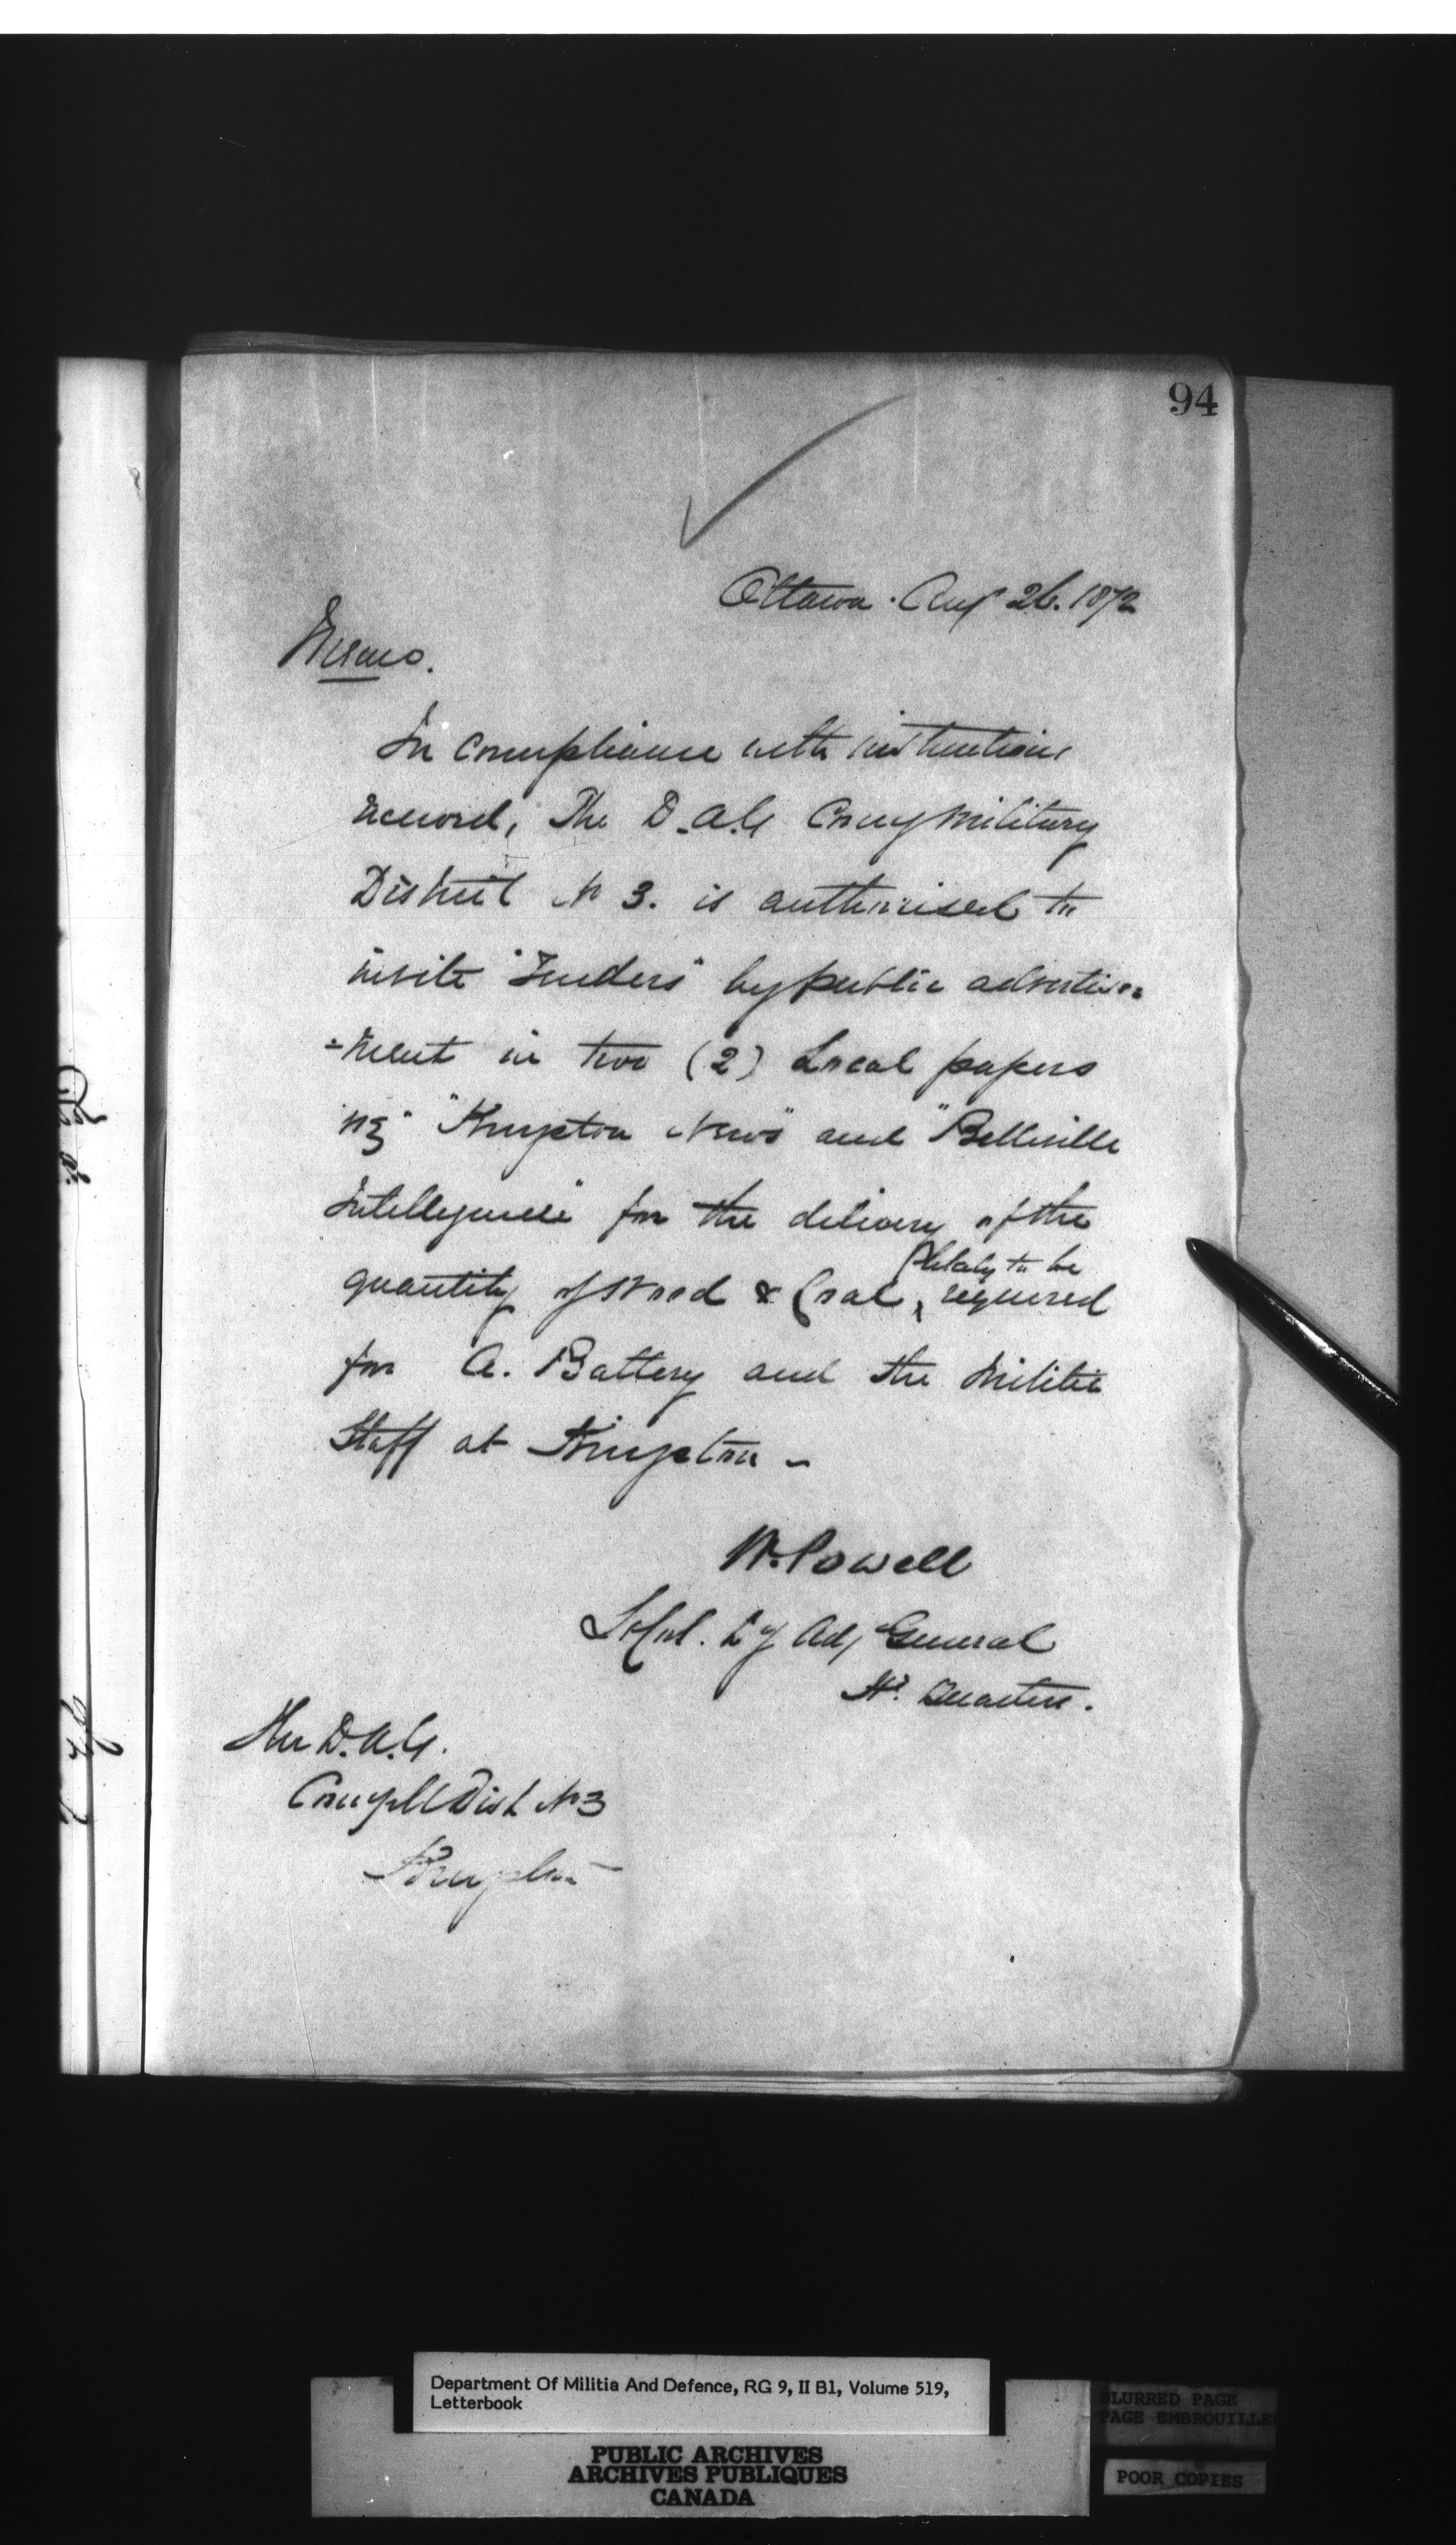 94
Ottawa. Aug 26. 1872
Memo.
In compliance with instructions
received, The D.A.G Comg Military
District No 3. is authorised to
invite "Tenders" by public advertise=
=ment in two (2) Local papers
viz "Kingston News" and "Belleville
Intelligencer" for the delivery of the
likely to be
quantity of Wood & Coal, required
for A. Battery and the Militia
Staff at Kingston -
W. Powell
Lt Col. Dy Adj General
Hd. Quarters.
The D.A.G.
Comg M Dist No 3
Kingston
Department Of Militia And Defence, RG 9, II B1, Volume 519,
Letterbook
PUBLIC ARCHIVES
ARCHIVES PUBLIQUES
CANADA
BLURRED PAGE
PAGE EMBROUILLE
POOR COPIES